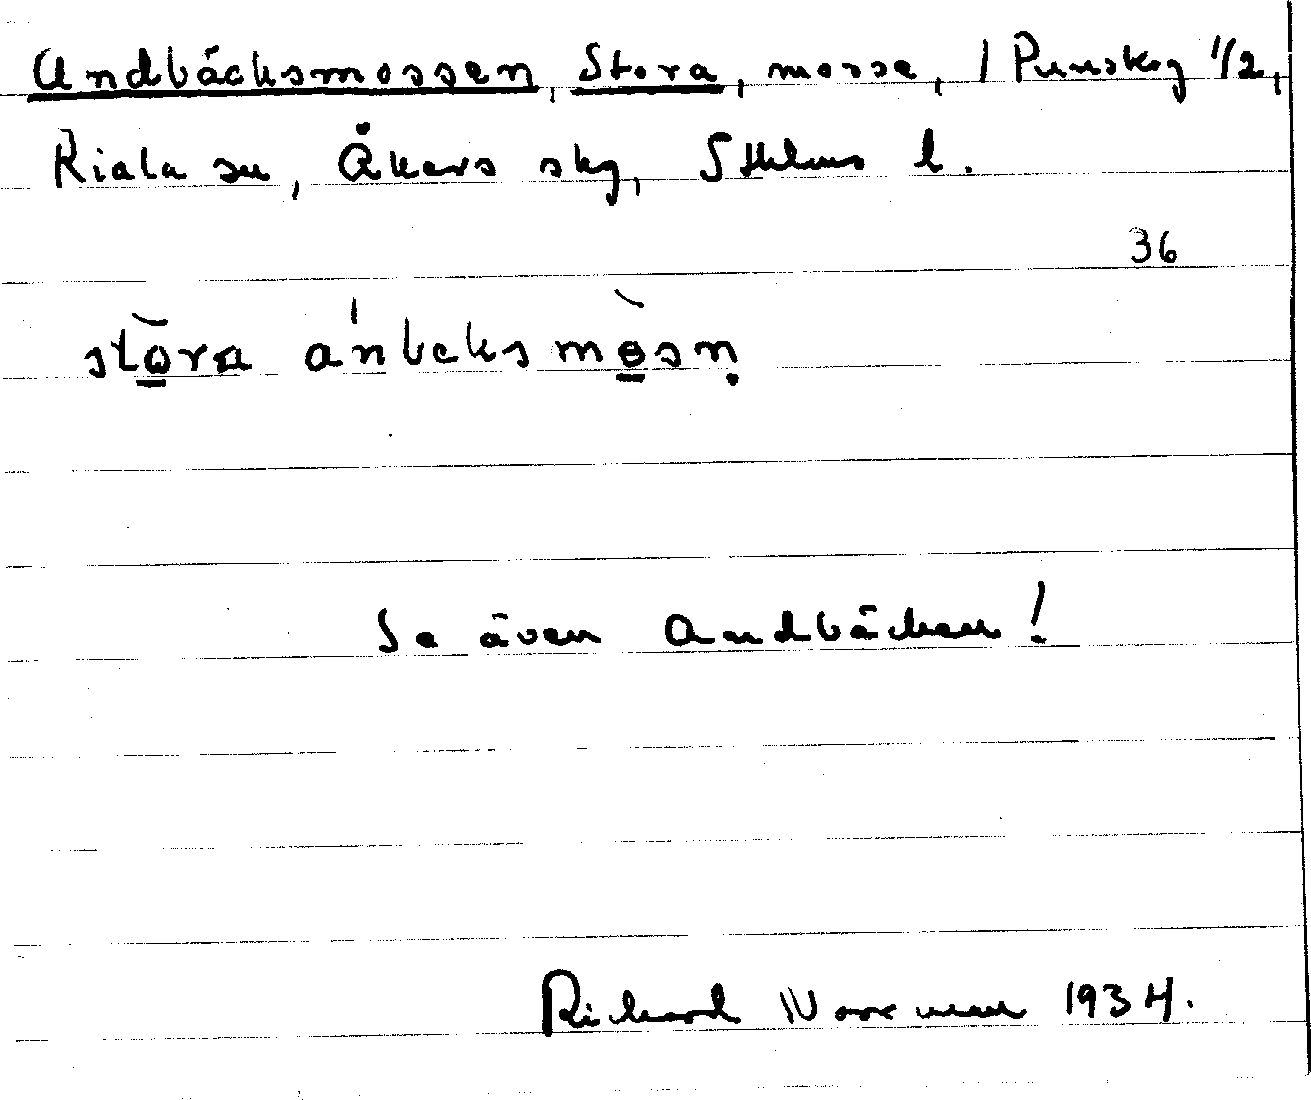 Andbäcksmossen, Stora, mosse, / Punskog 1/2,
Riala sn, Åkers skg, Sthlms l.
36
stōra ánbeksmòsn̥
Se även Andbäcken!
Richard 1934.